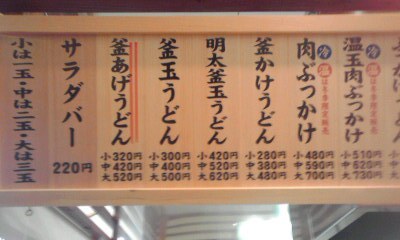 温玉肉ぶっかけ
冷
温
小 510円
中 620円
大 730円
肉ぶっかけ
冷
温
小 480円
中 590円
大 700円
釜かけうどん
小 280円
中 380円
大 480円
明太釜玉うどん
小 420円
中 520円
大 620円
釜玉うどん
小 300円
中 400円
大 500円
釜あげうどん
小 320円
中 420円
大 520円
サラダバー
220円
小は一玉・中は二玉・大は三玉